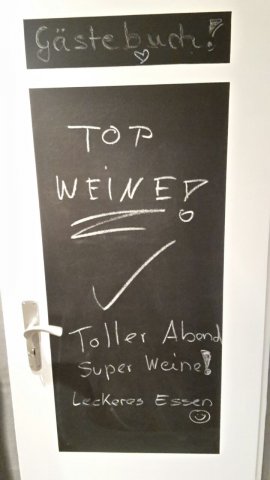 Gästebuch!
TOP
WEINE!
Toller Abend
Super Weine!
Leckeres Essen